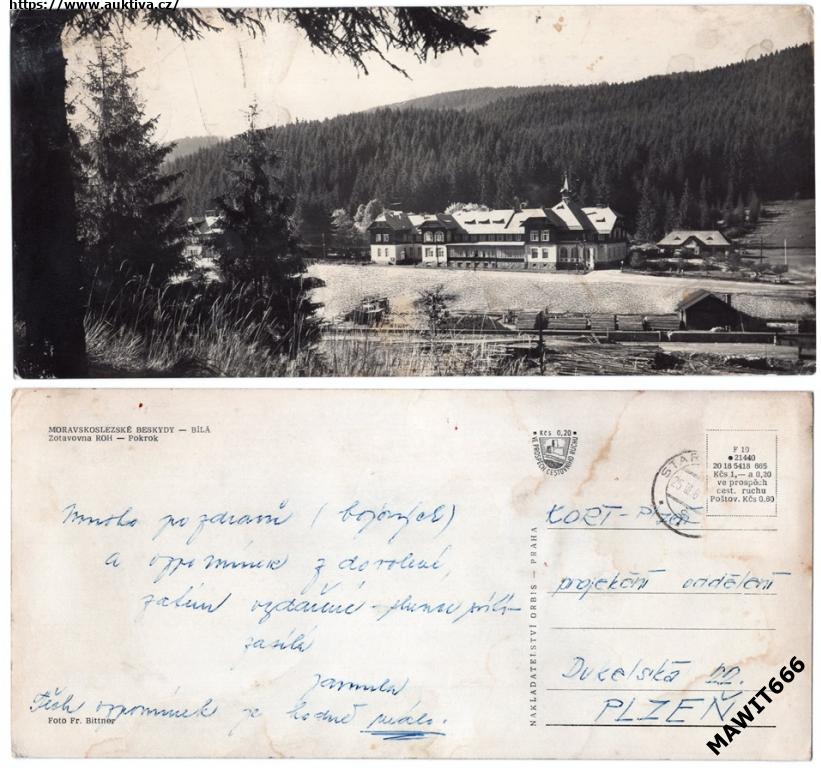 https://www.auktiva.cz/
MORAVSKOSLEZSKÉ BESKYDY — BÍLÁ
Zotavovna ROH — Pokrok
• Kčs 0,20 •
VE PROSPĚCH CESTOVNÍHO RUCHU
STAR
F 10
• 21440
20 18 5418 665
Kčs 1,— a 0,20
ve prospěch
cest. ruchu
Poštov. Kčs 0.60
Mnoho pozdravů (bojových)
a vzpomínek z dovolené,
zatím vzdušné - slunce
zasílá
Jarmila
Těch vzpomínek je hodně málo.
Foto Fr. Bittner
NAKLADATELSTVÍ ORBIS — PRAHA
projekční oddělení
Dukelská 22.
PLZEŇ
MAWIT666